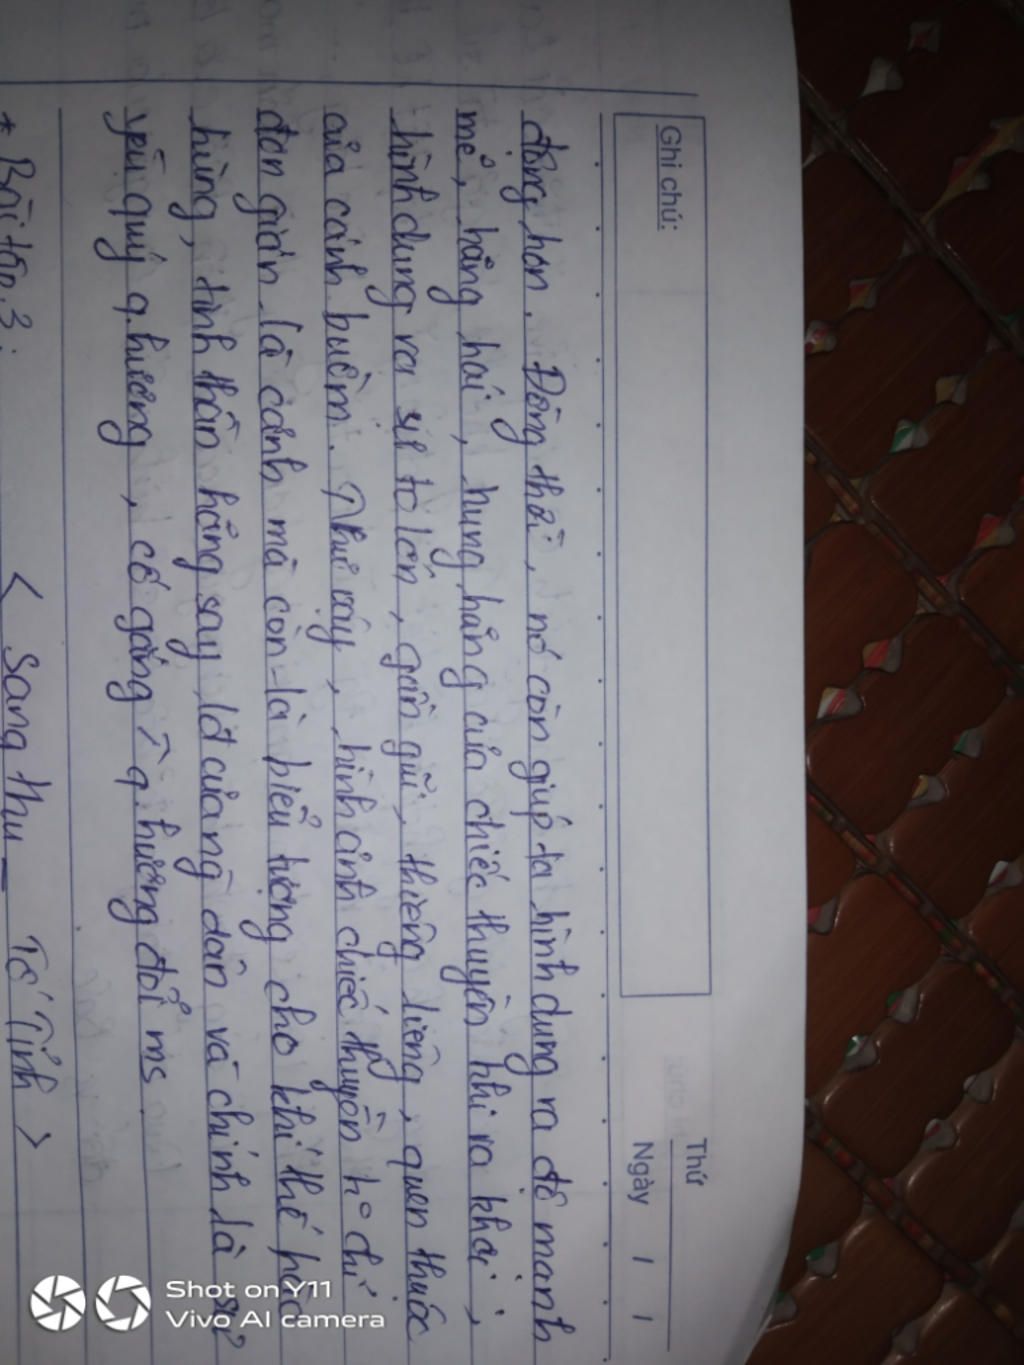 Thứ
Ghi chú:
Ngày / /
động hơn. Đồng thời, nó còn giúp ta hình dung ra độ mạnh
mẻ, hằng hái, hung hăng của chiếc thuyền khi ra khơi,
hình dung ra sự to lớn, gần gũi, thiêng liêng, quen thuộc
của cánh buồm. Như vậy, hình ảnh chiếc thuyền ko chỉ
đơn giản là cảnh mà còn là biểu tượng cho khí thế hào
hùng, tinh thần hăng say, lđ của ng dân và chính là sự
yêu quý q.hương, cố gắng q.hương đổi ms.
* Bài tập 3:
< Sang thu _ Tế Tỉnh >
Shot on Y11
Vivo AI camera